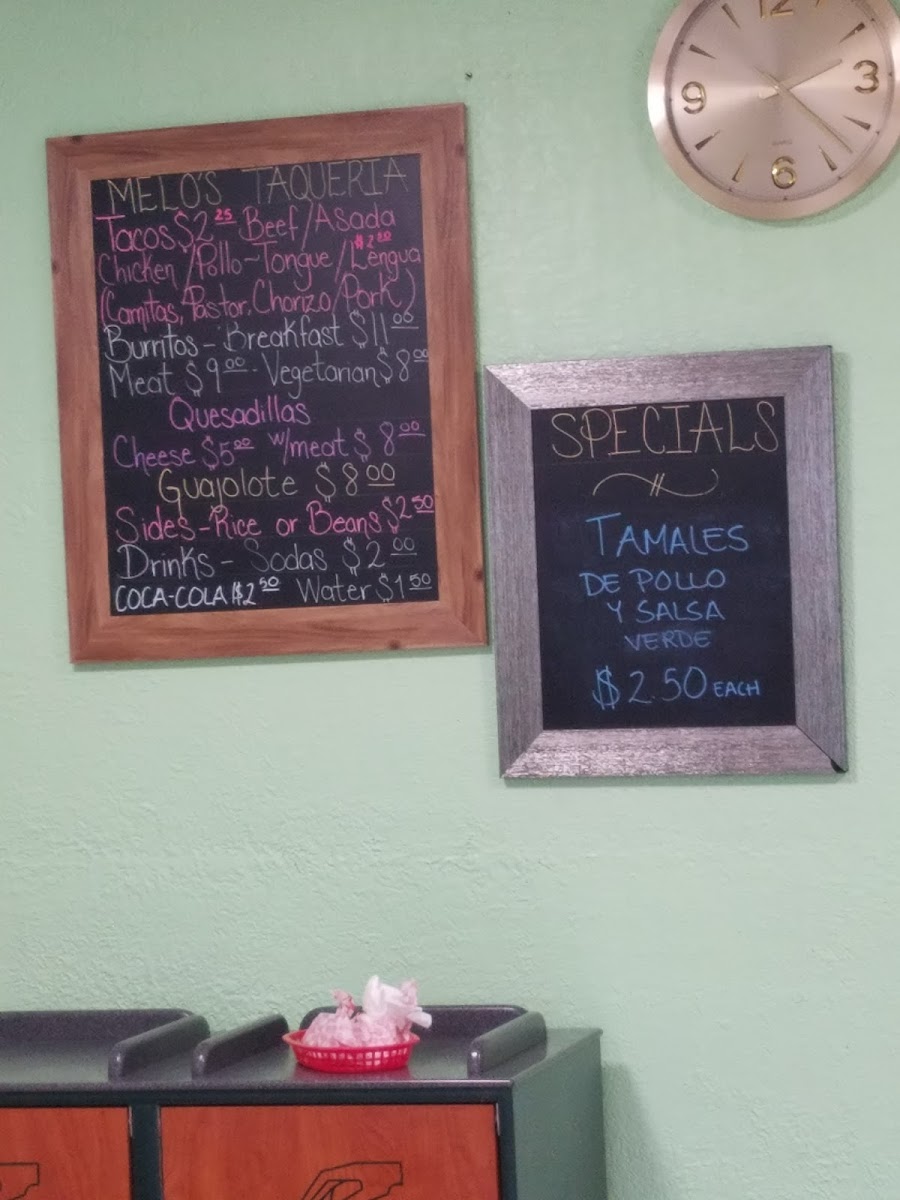 MELO'S TAQUERIA
Tacos $2.25 Beef/Asada
Chicken/Pollo-Tongue/Lengua
(Carnitas, Pastor, Chorizo/Pork)
Burritos - Breakfast $11.00
Meat $9.00 - Vegetarian $8.00
Quesadillas
Cheese $5.00 w/meat $8.00
Guajolote $8.00
Sides-Rice or Beans $2.50
Drinks - Sodas $2.00
COCA-COLA $2.50 Water $1.50
SPECIALS
TAMALES
DE POLLO
Y SALSA
VERDE
$2.50 EACH
12
3
6
9